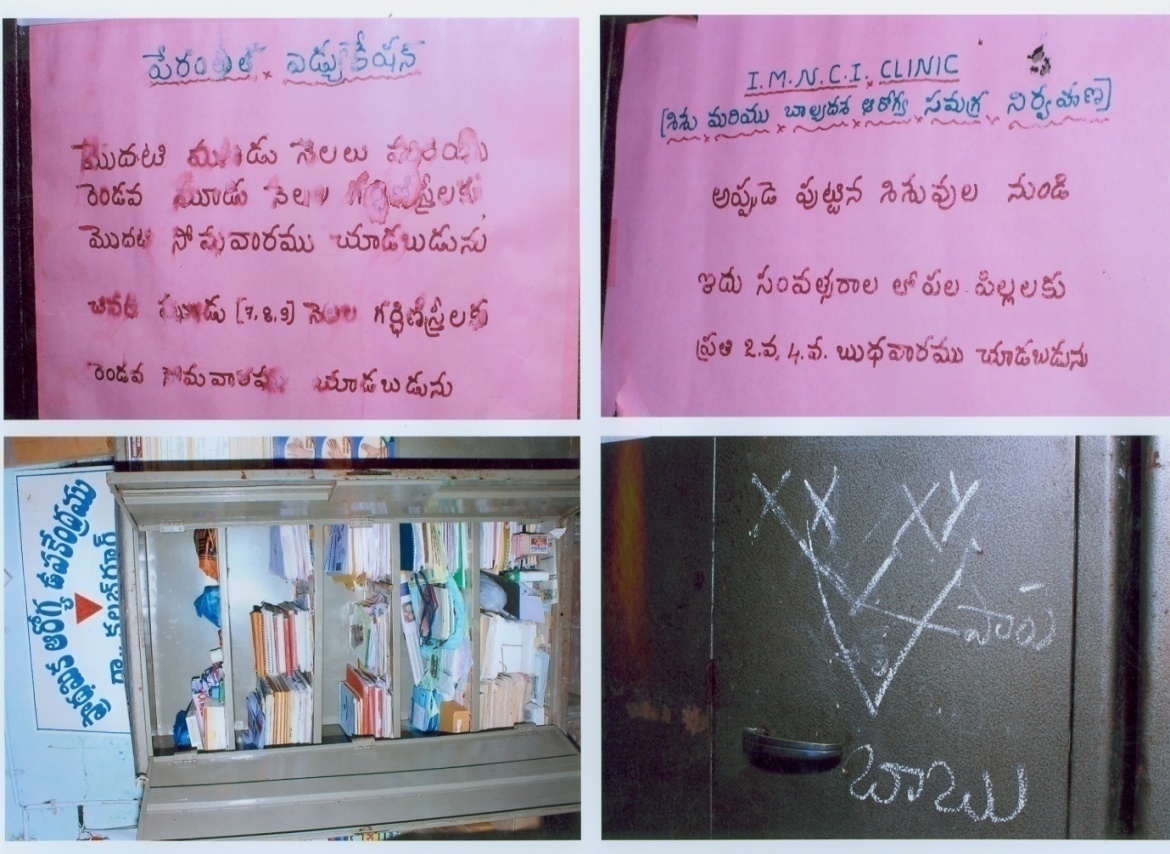 పేరంట్స్ ఎడ్యుకేషన్
మొదటి మూడు నెలలు మరియు
రెండవ మూడు నెలల గర్భిణీస్త్రీలకు
మొదటి సోమవారము చూడబడును
చివరి మూడు [7,8,9] నెలల గర్భిణీస్త్రీలకు
రెండవ సోమవారము చూడబడును
I.M.N.C.I. CLINIC
[శిశు మరియు బాల్యదశ ఆరోగ్య సమగ్ర నిర్వహణ]
అప్పుడె పుట్టిన శిశువుల నుండి
ఇదు సంవత్సరాల లోపుల పిల్లలకు
ప్రతి 2.వ, 4.వ. బుధవారము చూడబడును
ప్రాథమిక ఆరోగ్య ఉపకేంద్రము
గ్రా..
X X X Y
పాప
బాబు